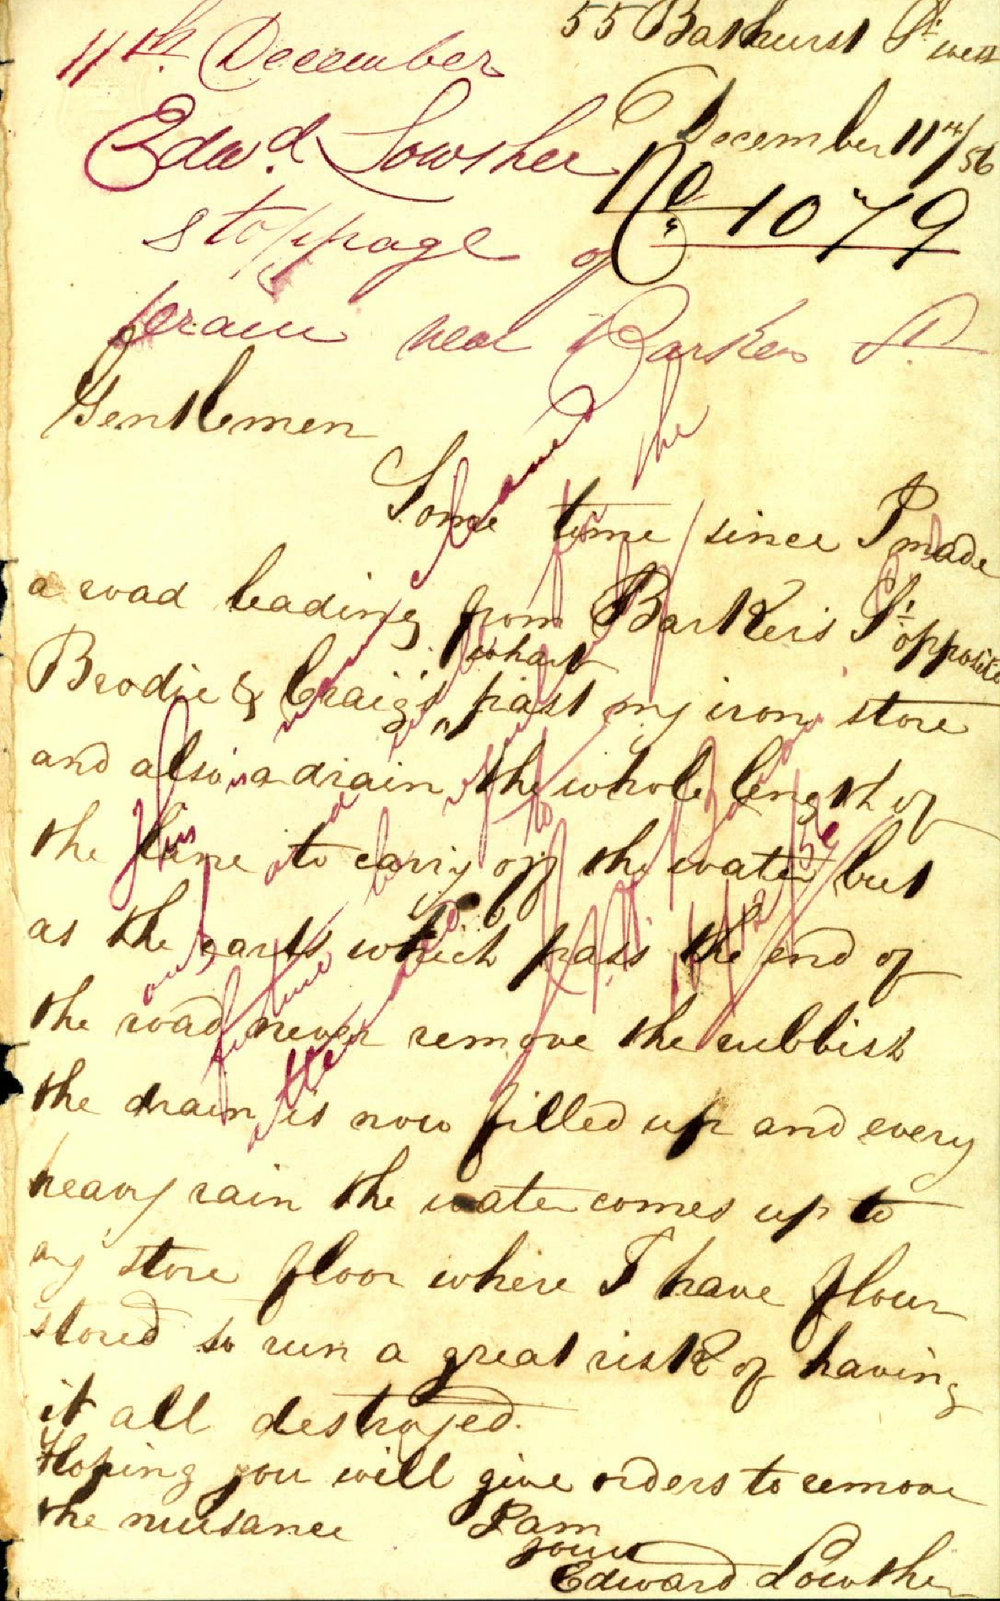 55 Bathurst St west
December 11th/56
No. 1079
11th December
Edwd. Lowther
stoppage of
drain near Barker St.
Gentlemen
Some time since I made
a road leading from Barkers St. opposite
Brodie & Craig's wharf past my iron store
and also a drain the whole length of
the Lane to carry off the water but
as the carts which pass the end of
the road never remove the rubbish
the drain is now filled up and every
heavy rain the water comes up to
my store floor where I have flour
stored so run a great risk of having
it all destroyed.
Hoping you will give orders to remove
the nuisance I am
your
Edward Lowther
This is now cleaned
out and will for the
future be
attended to